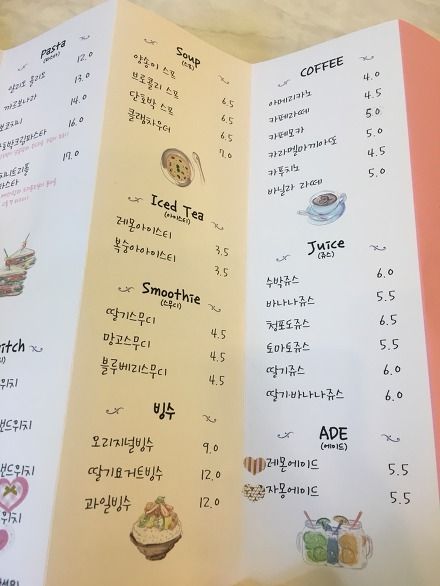 Pasta
(파스타)
알리오 올리오 12.0
까르보나라 13.0
14.0
크림파스타 16.0
17.0
파스타
Soup
(스프)
양송이 스프 6.5
브로콜리 스프 6.5
단호박 스프 6.5
클램차우더 7.0
Iced Tea
(아이스티)
레몬아이스티 3.5
복숭아아이스티 3.5
Smoothie
(스무디)
딸기스무디 4.5
망고스무디 4.5
블루베리스무디 4.5
빙수
오리지널빙수 9.0
딸기요거트빙수 12.0
과일빙수 12.0
COFFEE
아메리카노 4.0
카페라떼 4.5
카페모카 5.0
카라멜마끼아또 5.0
카푸치노 4.5
바닐라 라떼 5.0
Juice
(쥬스)
수박쥬스 6.0
바나나쥬스 5.5
청포도쥬스 6.5
토마토쥬스 5.5
딸기쥬스 6.0
딸기바나나쥬스 6.0
ADE
(에이드)
레몬에이드 5.5
자몽에이드 5.5